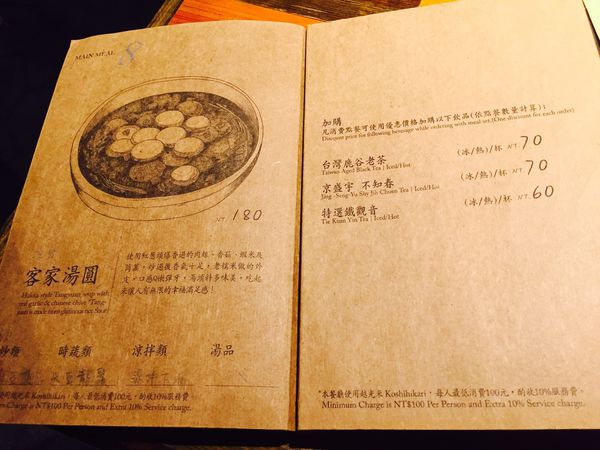 MAIN MEAL
8
NT. 180
客家湯圓
Hakka style Tangyuan, soup with
red garlic & chinese chive "Tang-
yuan is made from glutinous rice flour"
使用紅蔥頭爆香過的肉絲、香菇、蝦米及
茼蒿，炒過後香氣十足，老糯米做的外
皮，口感Q嫩彈牙，
來讓人有無限的幸福滿足感！
炒類 時蔬類 涼拌類 湯品
使用越光米 Koshihikari，每人最低消費100元，酌收10%服務費
Minimum Charge is NT$100 Per Person and Extra 10% Service charge.
加購
凡消費點餐可使用優惠價格加購以下飲品(依點餐數量計算)：
Discount price for following beverage while ordering with meal set.(One discount for each order)
台灣鹿谷老茶 (冰/熱)/杯 NT. 70
Taiwan Aged Black Tea | Iced/Hot
京盛宇 不知春 (冰/熱)/杯 NT. 70
Jing - Seng Yu Shy Jih Chuen Tea | Iced/Hot
特選鐵觀音 (冰/熱)/杯 NT. 60
Tie Kuan Yin Tea | Iced/Hot
*本餐廳使用越光米 Koshihikari，每人最低消費100元，酌收10%服務費。
Minimum Charge is NT$100 Per Person and Extra 10% Service charge.